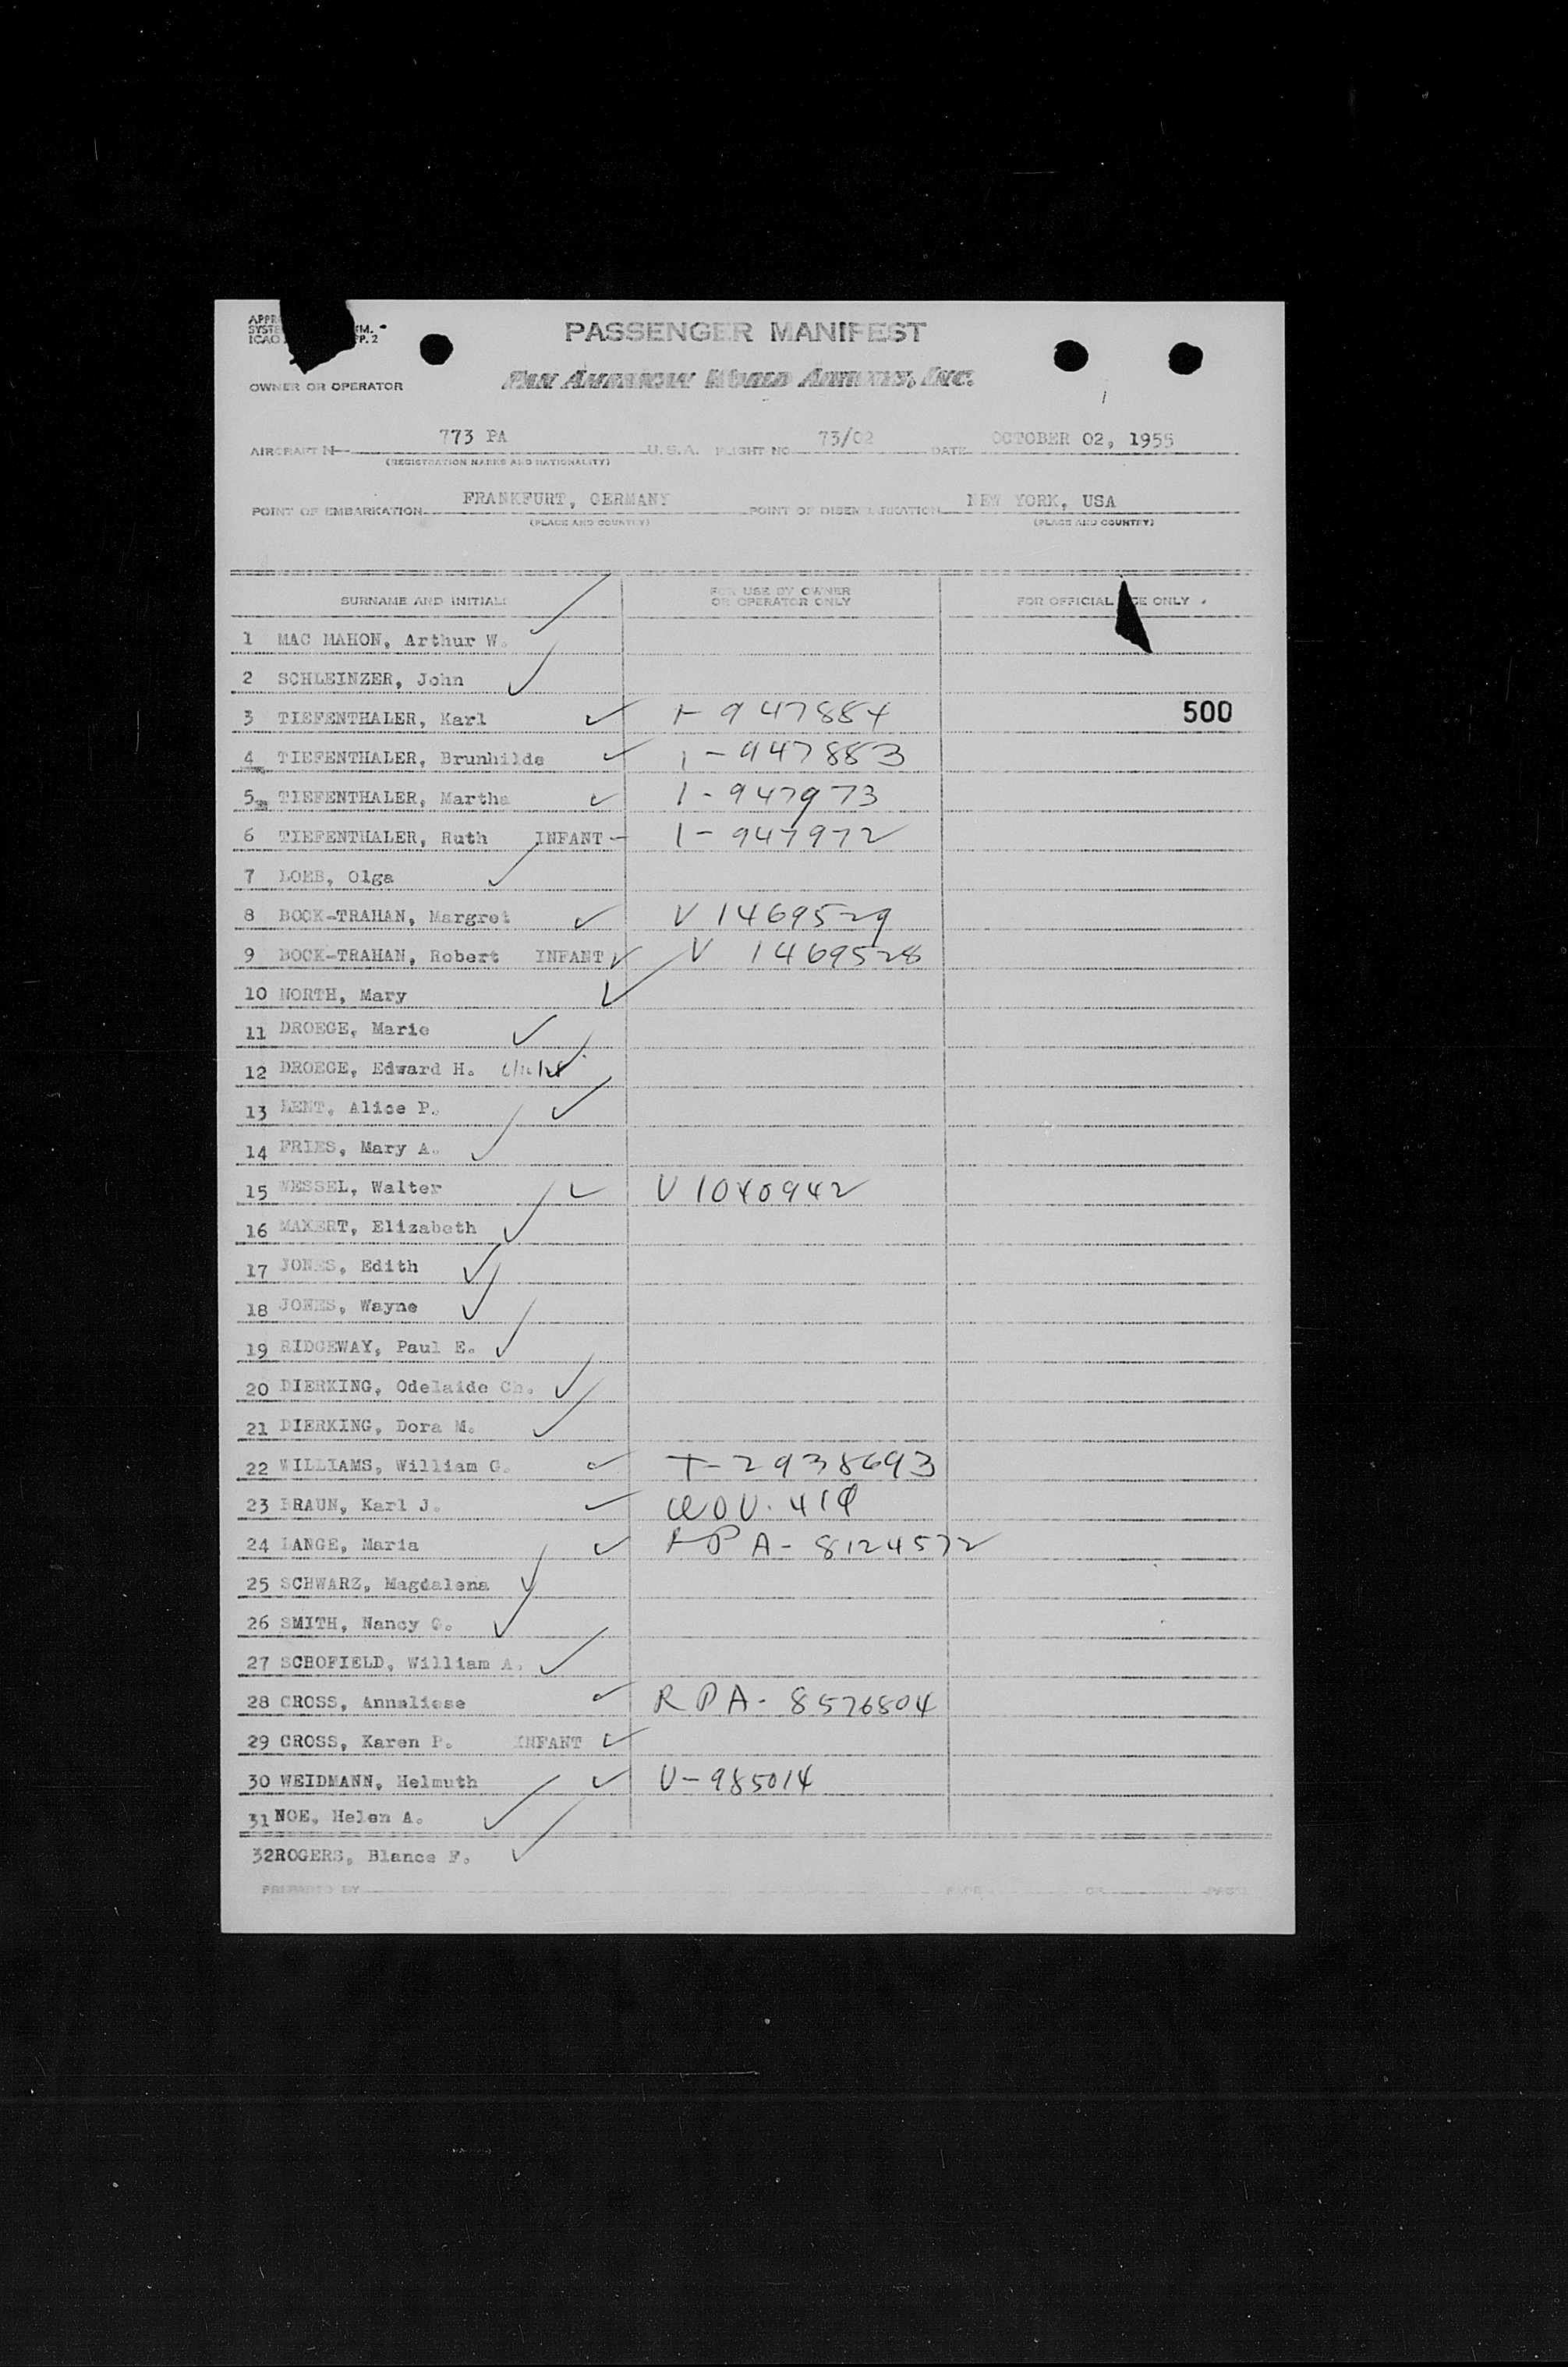 PASSENGER MANIFEST
PAN AMERICAN WORLD AIRWAYS, INC.
OWNER OR OPERATOR
AIRCRAFT N 773 PA U.S.A. FLIGHT NO 73/02 DATE OCTOBER 02, 1955
(REGISTRATION MARKS AND NATIONALITY)
POINT OF EMBARKATION FRANKFURT, GERMANY POINT OF DISEMBARKATION NEW YORK, USA
(PLACE AND COUNTRY) (PLACE AND COUNTRY)
SURNAME AND INITIALS FOR USE BY OWNER OR OPERATOR ONLY FOR OFFICIAL USE ONLY
1 MAC MAHON, Arthur W.
2 SCHLEINZER, John
3 TIEFENTHALER, Karl I-947884 500
4 TIEFENTHALER, Brunhilde I-947883
5 TIEFENTHALER, Martha I-947973
6 TIEFENTHALER, Ruth INFANT I-947972
7 LOEB, Olga
8 BOCK-TRAHAN, Margret V 1469529
9 BOCK-TRAHAN, Robert INFANT V 1469528
10 NORTH, Mary
11 DROEGE, Marie
12 DROEGE, Edward H.
13 LENT, Alice P.
14 FRIES, Mary A.
15 WESSEL, Walter V 1040942
16 MAKERT, Elizabeth
17 JONES, Edith
18 JONES, Wayne
19 RIDGEWAY, Paul E.
20 DIERKING, Odelaide Ch.
21 DIERKING, Dora M.
22 WILLIAMS, William G. T-2938693
23 BRAUN, Karl J.
24 LANGE, Maria RPA-8124572
25 SCHWARZ, Magdalena
26 SMITH, Nancy G.
27 SCHOFIELD, William A.
28 CROSS, Annaliese RPA-8576804
29 CROSS, Karen P. INFANT
30 WEIDMANN, Helmuth V-985014
31 NOE, Helen A.
32 ROGERS, Blance F.
PREPARED BY PAGE OF PAGES